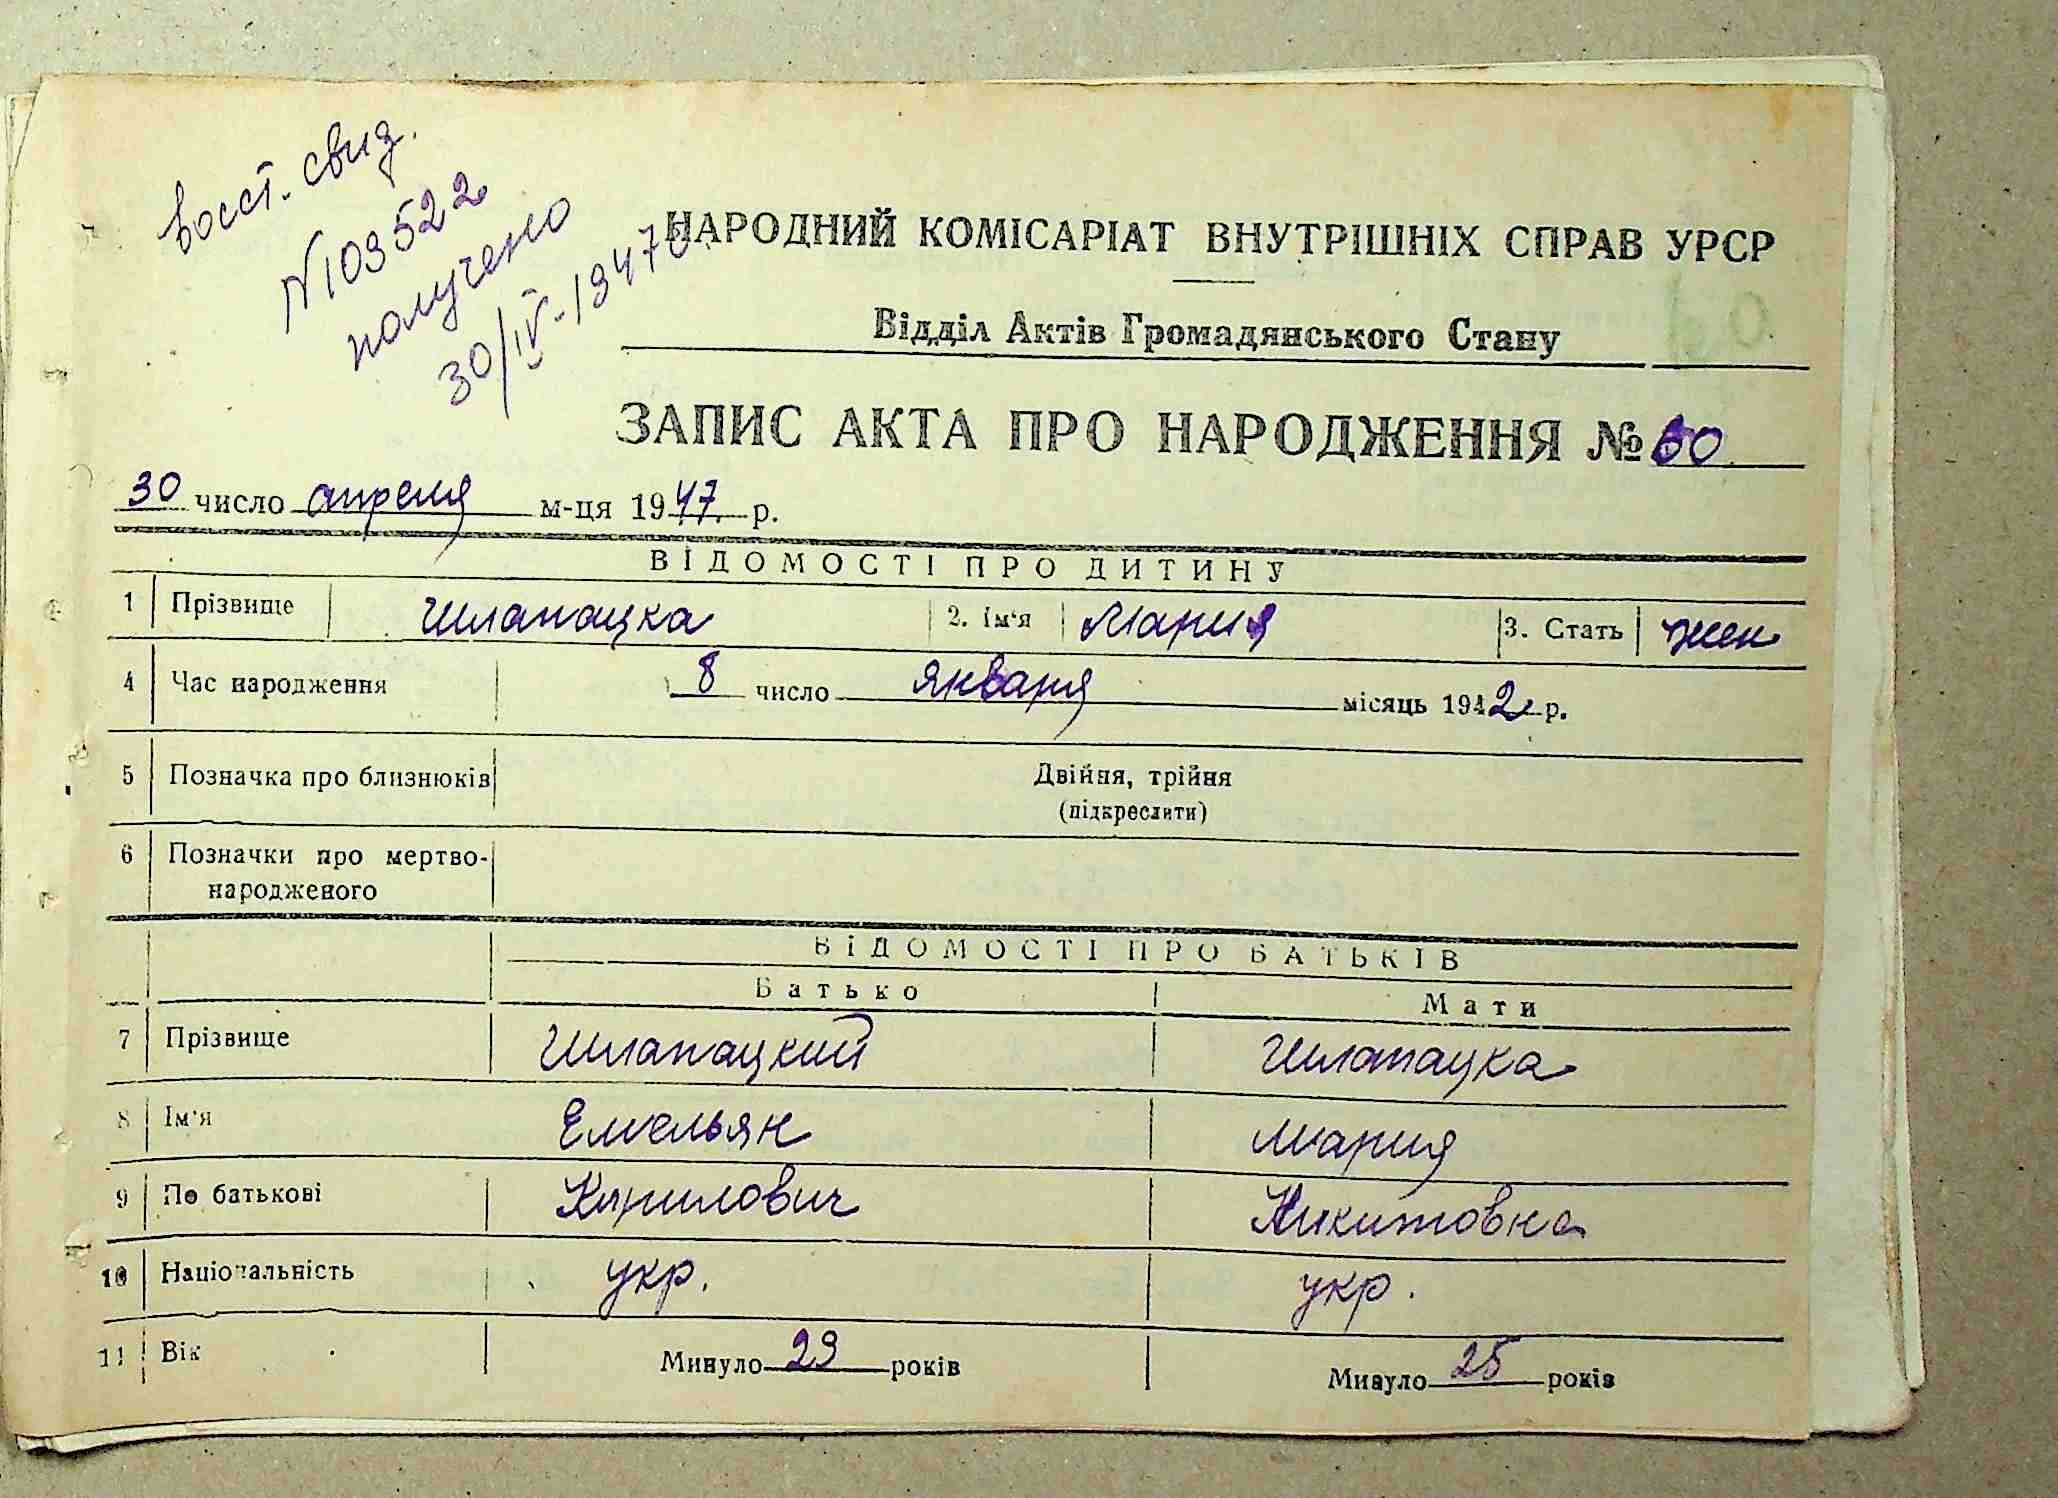 восст. свид.
N 103522
получено
30/IV-1947г.
НАРОДНИЙ КОМІСАРІАТ ВНУТРІШНІХ СПРАВ УРСР
Відділ Актів Громадянського Стану
ЗАПИС АКТА ПРО НАРОДЖЕННЯ № 60
30 число апреля м-ця 1947 р.
ВІДОМОСТІ ПРО ДИТИНУ
1 Прізвище Шлапацка 2. Ім'я Мария 3. Стать жен
4 Час народження 8 число января місяць 1942 р.
5 Позначка про близнюків Двійня, трійня
(підкреслити)
6 Позначки про мертво-
народженого
ВІДОМОСТІ ПРО БАТЬКІВ
Батько Мати
7 Прізвище Шлапацкий Шлапацка
8 Ім'я Емельян Мария
9 По батькові Кирилович Никитовна
10 Національність укр. укр.
11 Вік Минуло 29 років Минуло 25 років